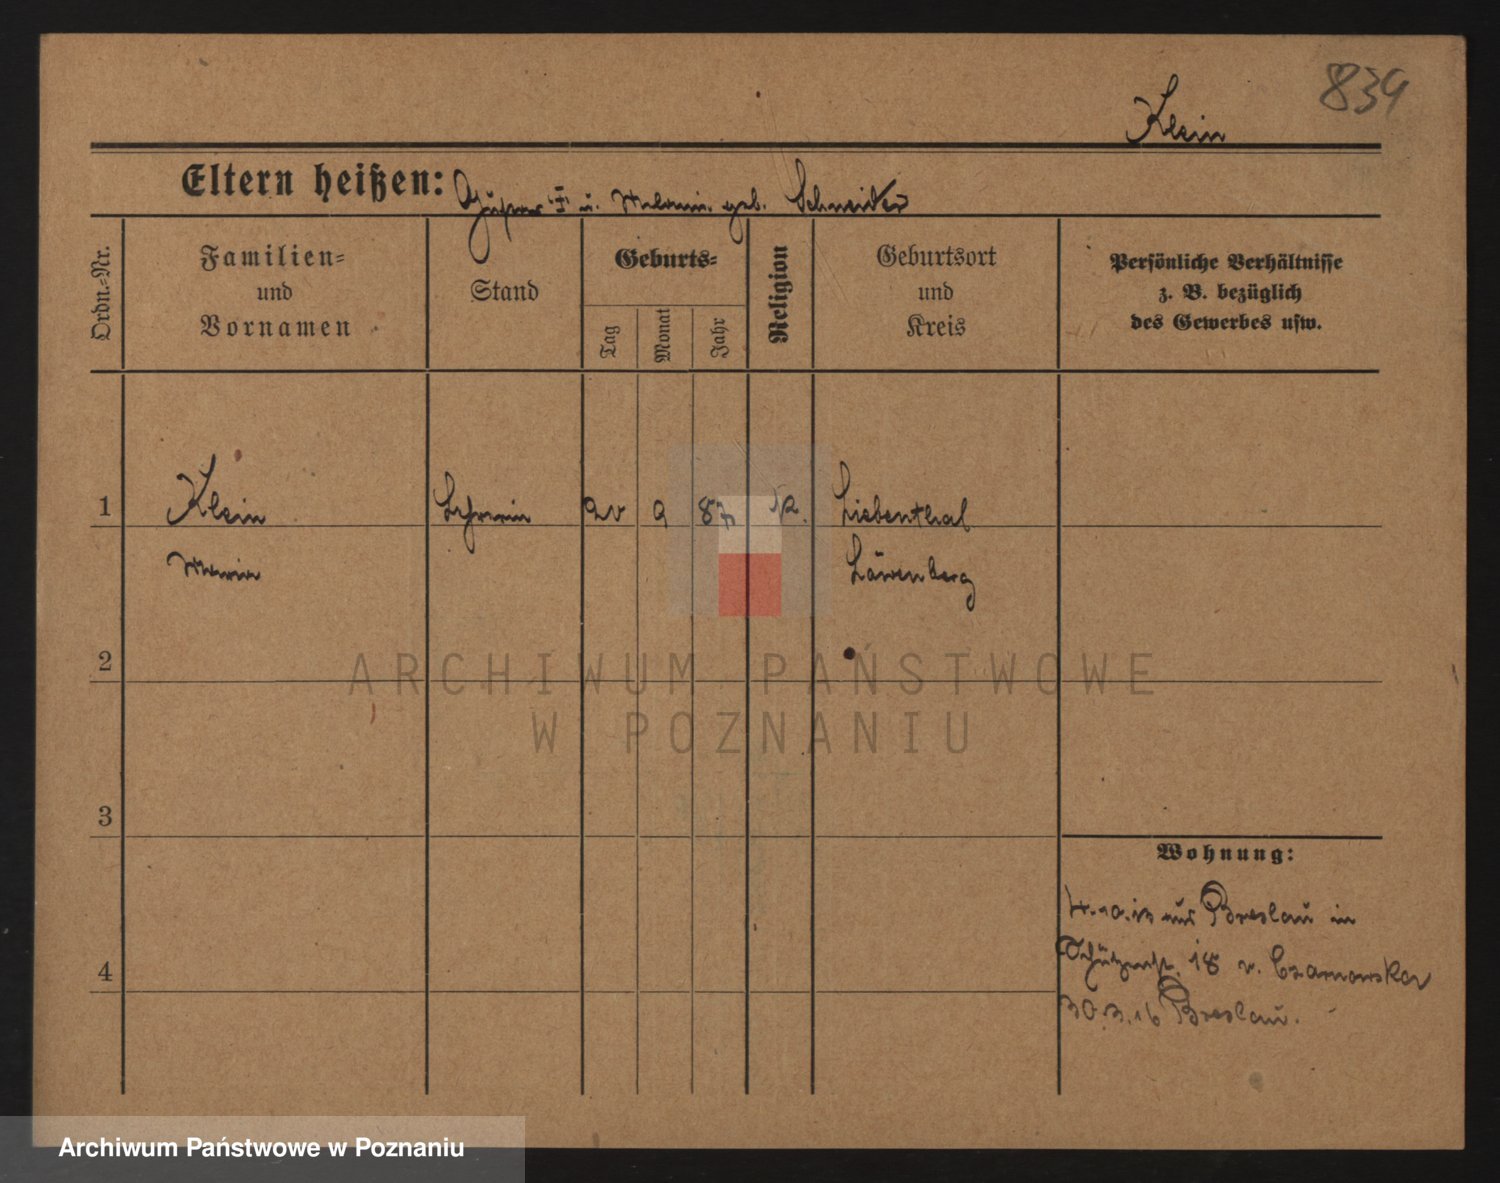 839
Klein
Eltern heißen: u. geb. Schneider
Ordn.-Nr.
Familien-
und
Vornamen
Stand
Geburts-
Tag
Monat
Jahr
Religion
Geburtsort
und
Kreis
Persönliche Verhältnisse
z. B. bezüglich
des Gewerbes usw.
1
Klein
Lehrerin
9 87 k.
Liebenthal
Maria
Löwenberg
2
ARCHIWUM PAŃSTWOWE
W POZNANIU
3
Wohnung:
aus Breslau in
Schützenstr. 18 v. Czarnowska
4
30.3.16 Breslau.
Archiwum Państwowe w Poznaniu